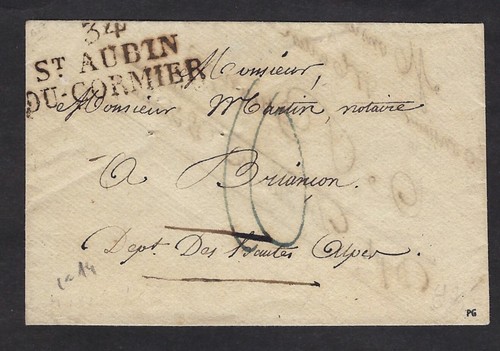 34
ST AUBIN
DU-CORMIER
Monsieur,
Monsieur Martin, notaire
A Briançon.
Dept. Des hautes Alpes.
PG